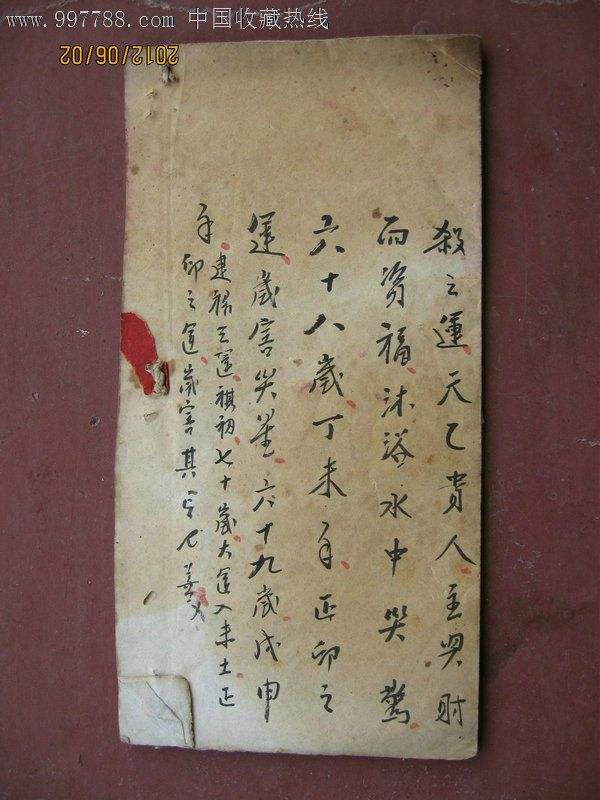 www.997788.com 中国收藏热线
2012/06/02
殺之運天乙貴人主興財
而資福沐浴水中哭驚
六十八歲丁未年正印之
運歲害哭星六十九歲戊申
年建祿之運祺初七十歲大運入未土正
印之運歲害其